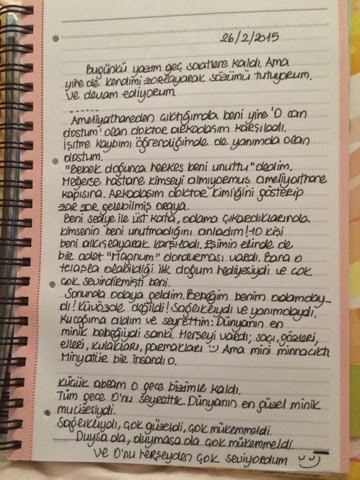 26/2/2015
Bugünkü yazım geç saatlere kaldı. Ama
yine de kendimi zorlayarak sözümü tutuyorum.
Ve devam ediyorum
.......
Ameliyathaneden çıktığımda beni yine 'O can
dostum' olan doktor arkadaşım karşıladı.
İşitme kaybını öğrendiğimde de yanımda olan
dostum.
"Bebek doğunca herkes beni unuttu" dedim.
Meğerse hastane kimseyi almıyormuş ameliyathane
kapısına. Arkadaşım doktor kimliğini gösterip
zar zor gelebilmiş oraya.
Beni sedye ile üst kata, odama çıkardıklarında
kimsenin beni unutmadığını anladım! 10 kişi
beni alkışlayarak karşıladı. Eşimin elinde de
bir adet "Magnum" dondurması vardı. Bana o
telaşla alabildiği ilk doğum hediyesiydi ve çok
çok sevindirmişti beni.
Sonunda odaya geldim. Bebeğim benim odamday-
dı! Küvözde değildi! Sağlıklıydı ve yanımdaydı.
Kucağıma aldım ve seyrettim: Dünyanın en
minik bebeğiydi sanki. Herşeyi vardı; saçı, gözleri,
elleri, kulakları, parmakları :) Ama mini minnacıktı
Minyatür bir insandı O.
Küçük ablam o gece bizimle kaldı.
Tüm gece O'nu seyrettik. Dünyanın en güzel minik
mucizesiydi.
Sağlıklıydı, çok güzeldi, çok mükemmeldi.
Duysa da, duymasa da çok mükemmeldi.
Ve O'nu herşeyden çok seviyordum :)